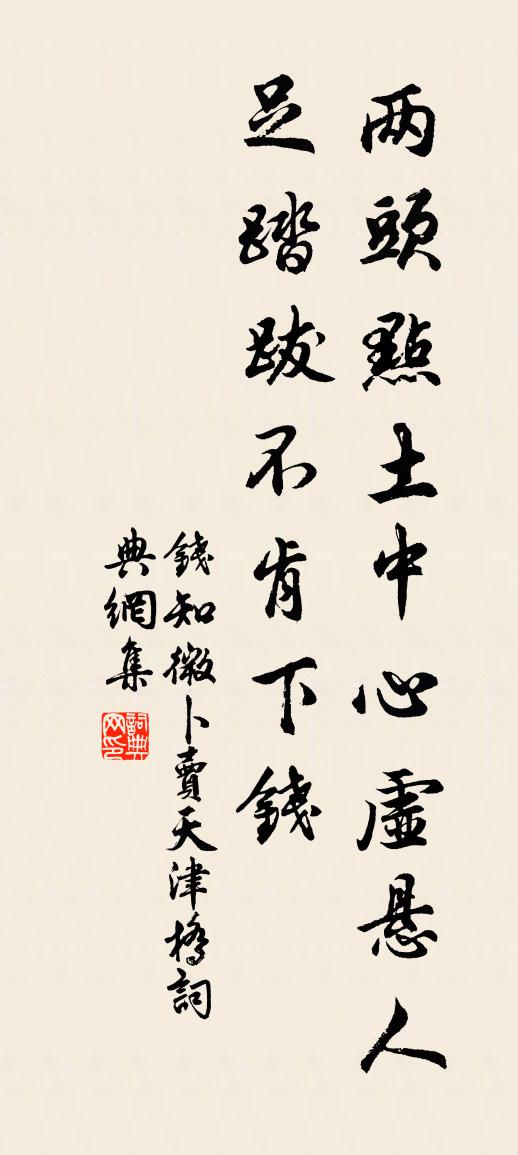 两頭點土中心虛悬人
足踏跋不肯下錢
錢知微卜賣天津橋詞
典網集
詞典网印